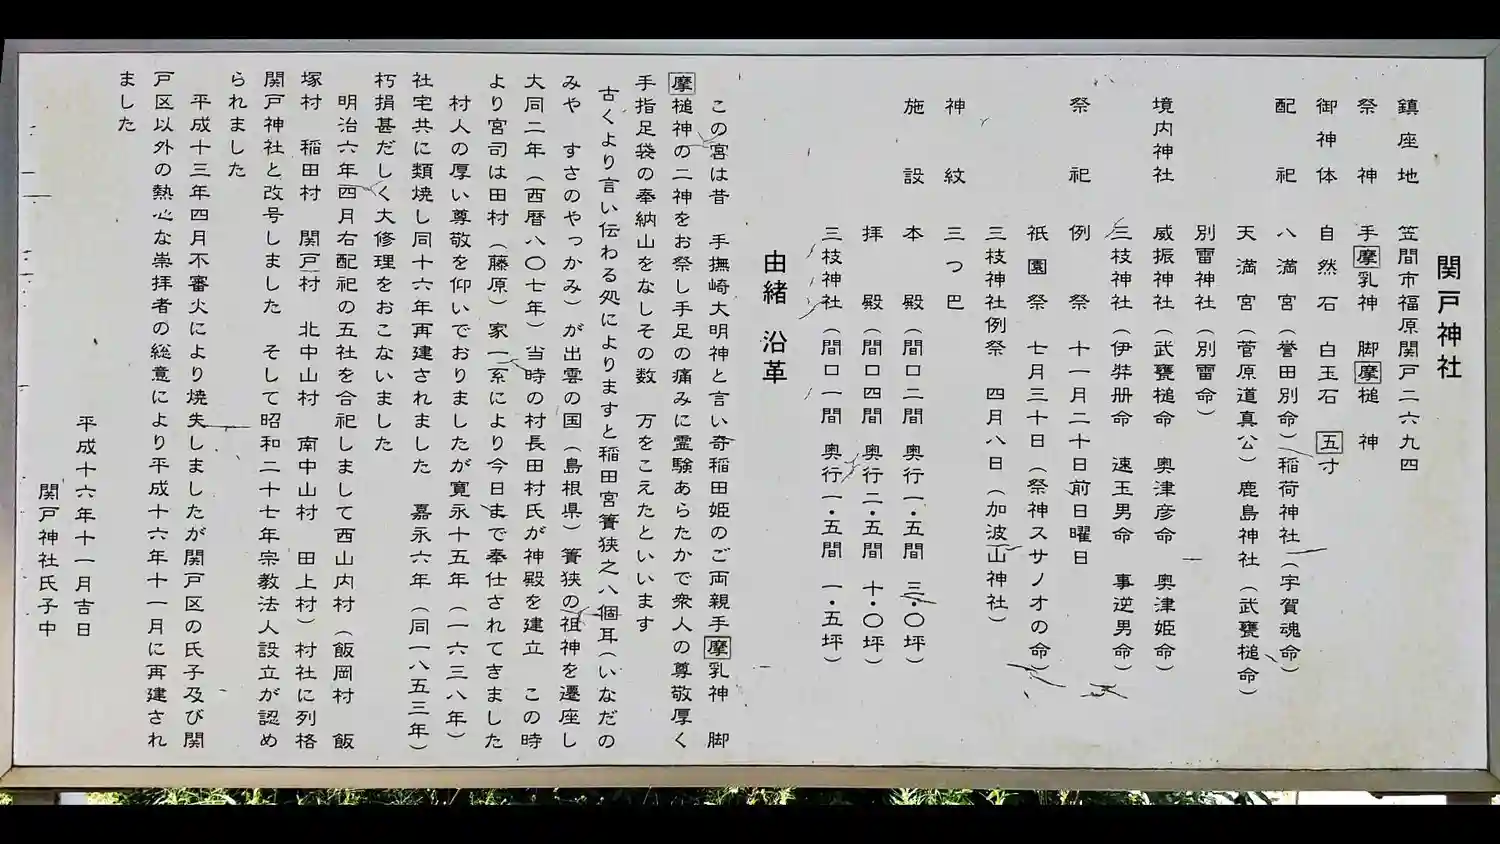 関戸神社
鎮座地 笠間市福原関戸二六九四
祭神 手摩乳神 脚摩槌 神
御神体 自然石 白玉石 五寸
配祀 八満宮(誉田別命)稲荷神社(宇賀魂命)
天満宮(菅原道真公)鹿島神社(武甕槌命)
別雷神社(別雷命)
境内神社 威振神社(武甕槌命 奥津彦命 奥津姫命)
三枝神社(伊弉册命 速玉男命 事逆男命)
祭祀 例祭 十一月二十日前日曜日
祇園祭 七月三十日(祭神スサノオの命)
三枝神社例祭 四月八日(加波山神社)
神紋 三つ巴
施設 本殿(間口二間 奥行一・五間 三・〇坪)
拝殿(間口四間 奥行二・五間 十・〇坪)
三枝神社(間口一間 奥行一・五間 一・五坪)
由緒 沿革
この宮は昔 手撫崎大明神と言い奇稲田姫のご両親手摩乳神 脚
摩槌神の二神をお祭し手足の痛みに霊験あらたかで衆人の尊敬厚く
手指足袋の奉納山をなしその数 万をこえたといいます
古くより言い伝わる処によりますと稲田宮簀狭之八個耳(いなだの
みや すさのやっかみ)が出雲の国(島根県)簀狭の祖神を遷座し
大同二年(西暦八〇七年)当時の村長田村氏が神殿を建立 この時
より宮司は田村(藤原)家一系により今日まで奉仕されてきました
村人の厚い尊敬を仰いでおりましたが寛永十五年(一六三八年)
社宅共に類焼し同十六年再建されました 嘉永六年(同一八五三年)
朽損甚だしく大修理をおこないました
明治六年四月右配祀の五社を合祀しまして西山内村(飯岡村 飯
塚村 稲田村 関戸村 北中山村 南中山村 田上村)村社に列格
関戸神社と改号しました そして昭和二十七年宗教法人設立が認め
られました
平成十三年四月不審火により焼失しましたが関戸区の氏子及び関
戸区以外の熱心な崇拝者の総意により平成十六年十一月に再建され
ました
平成十六年十一月吉日
関戸神社氏子中